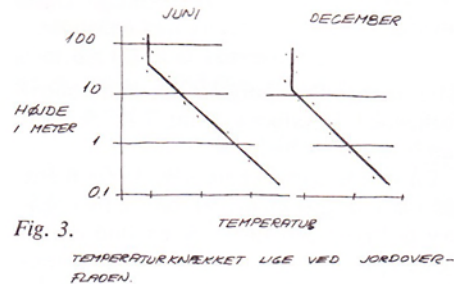 JUNI
DECEMBER
100
10
HØJDE
I METER
1
0.1
TEMPERATUR
Fig. 3.
TEMPERATURKNÆKKET LIGE VED JORDOVER-
FLADEN.